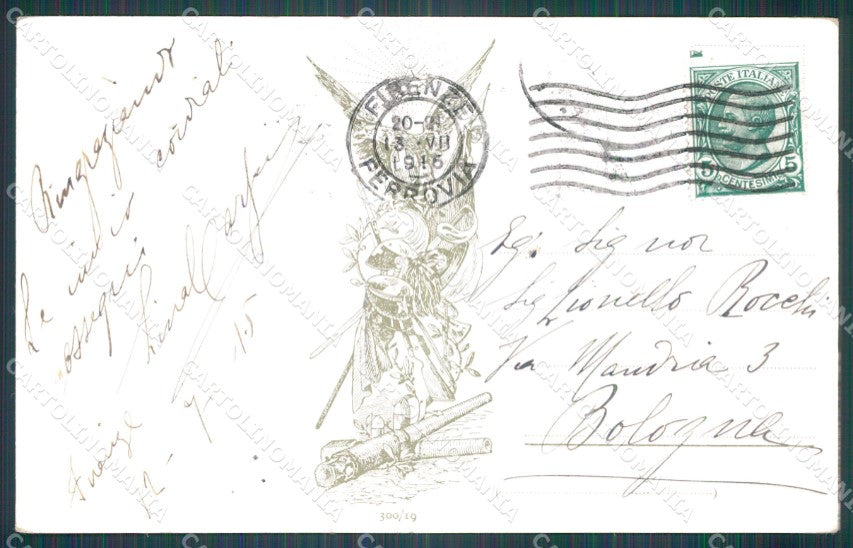 Ringraziando
Le invio cordiali
ossequi
Firenze
12-7-15
FIRENZE
20-21
13 VII
1915
FERROVIA
POSTE ITALIANE
5 5
CENTESIMI
Eg. Signor
Sig Lionello Rocchi
Via Mandria 3
Bologna
300/19
CARTOLINOMANIA